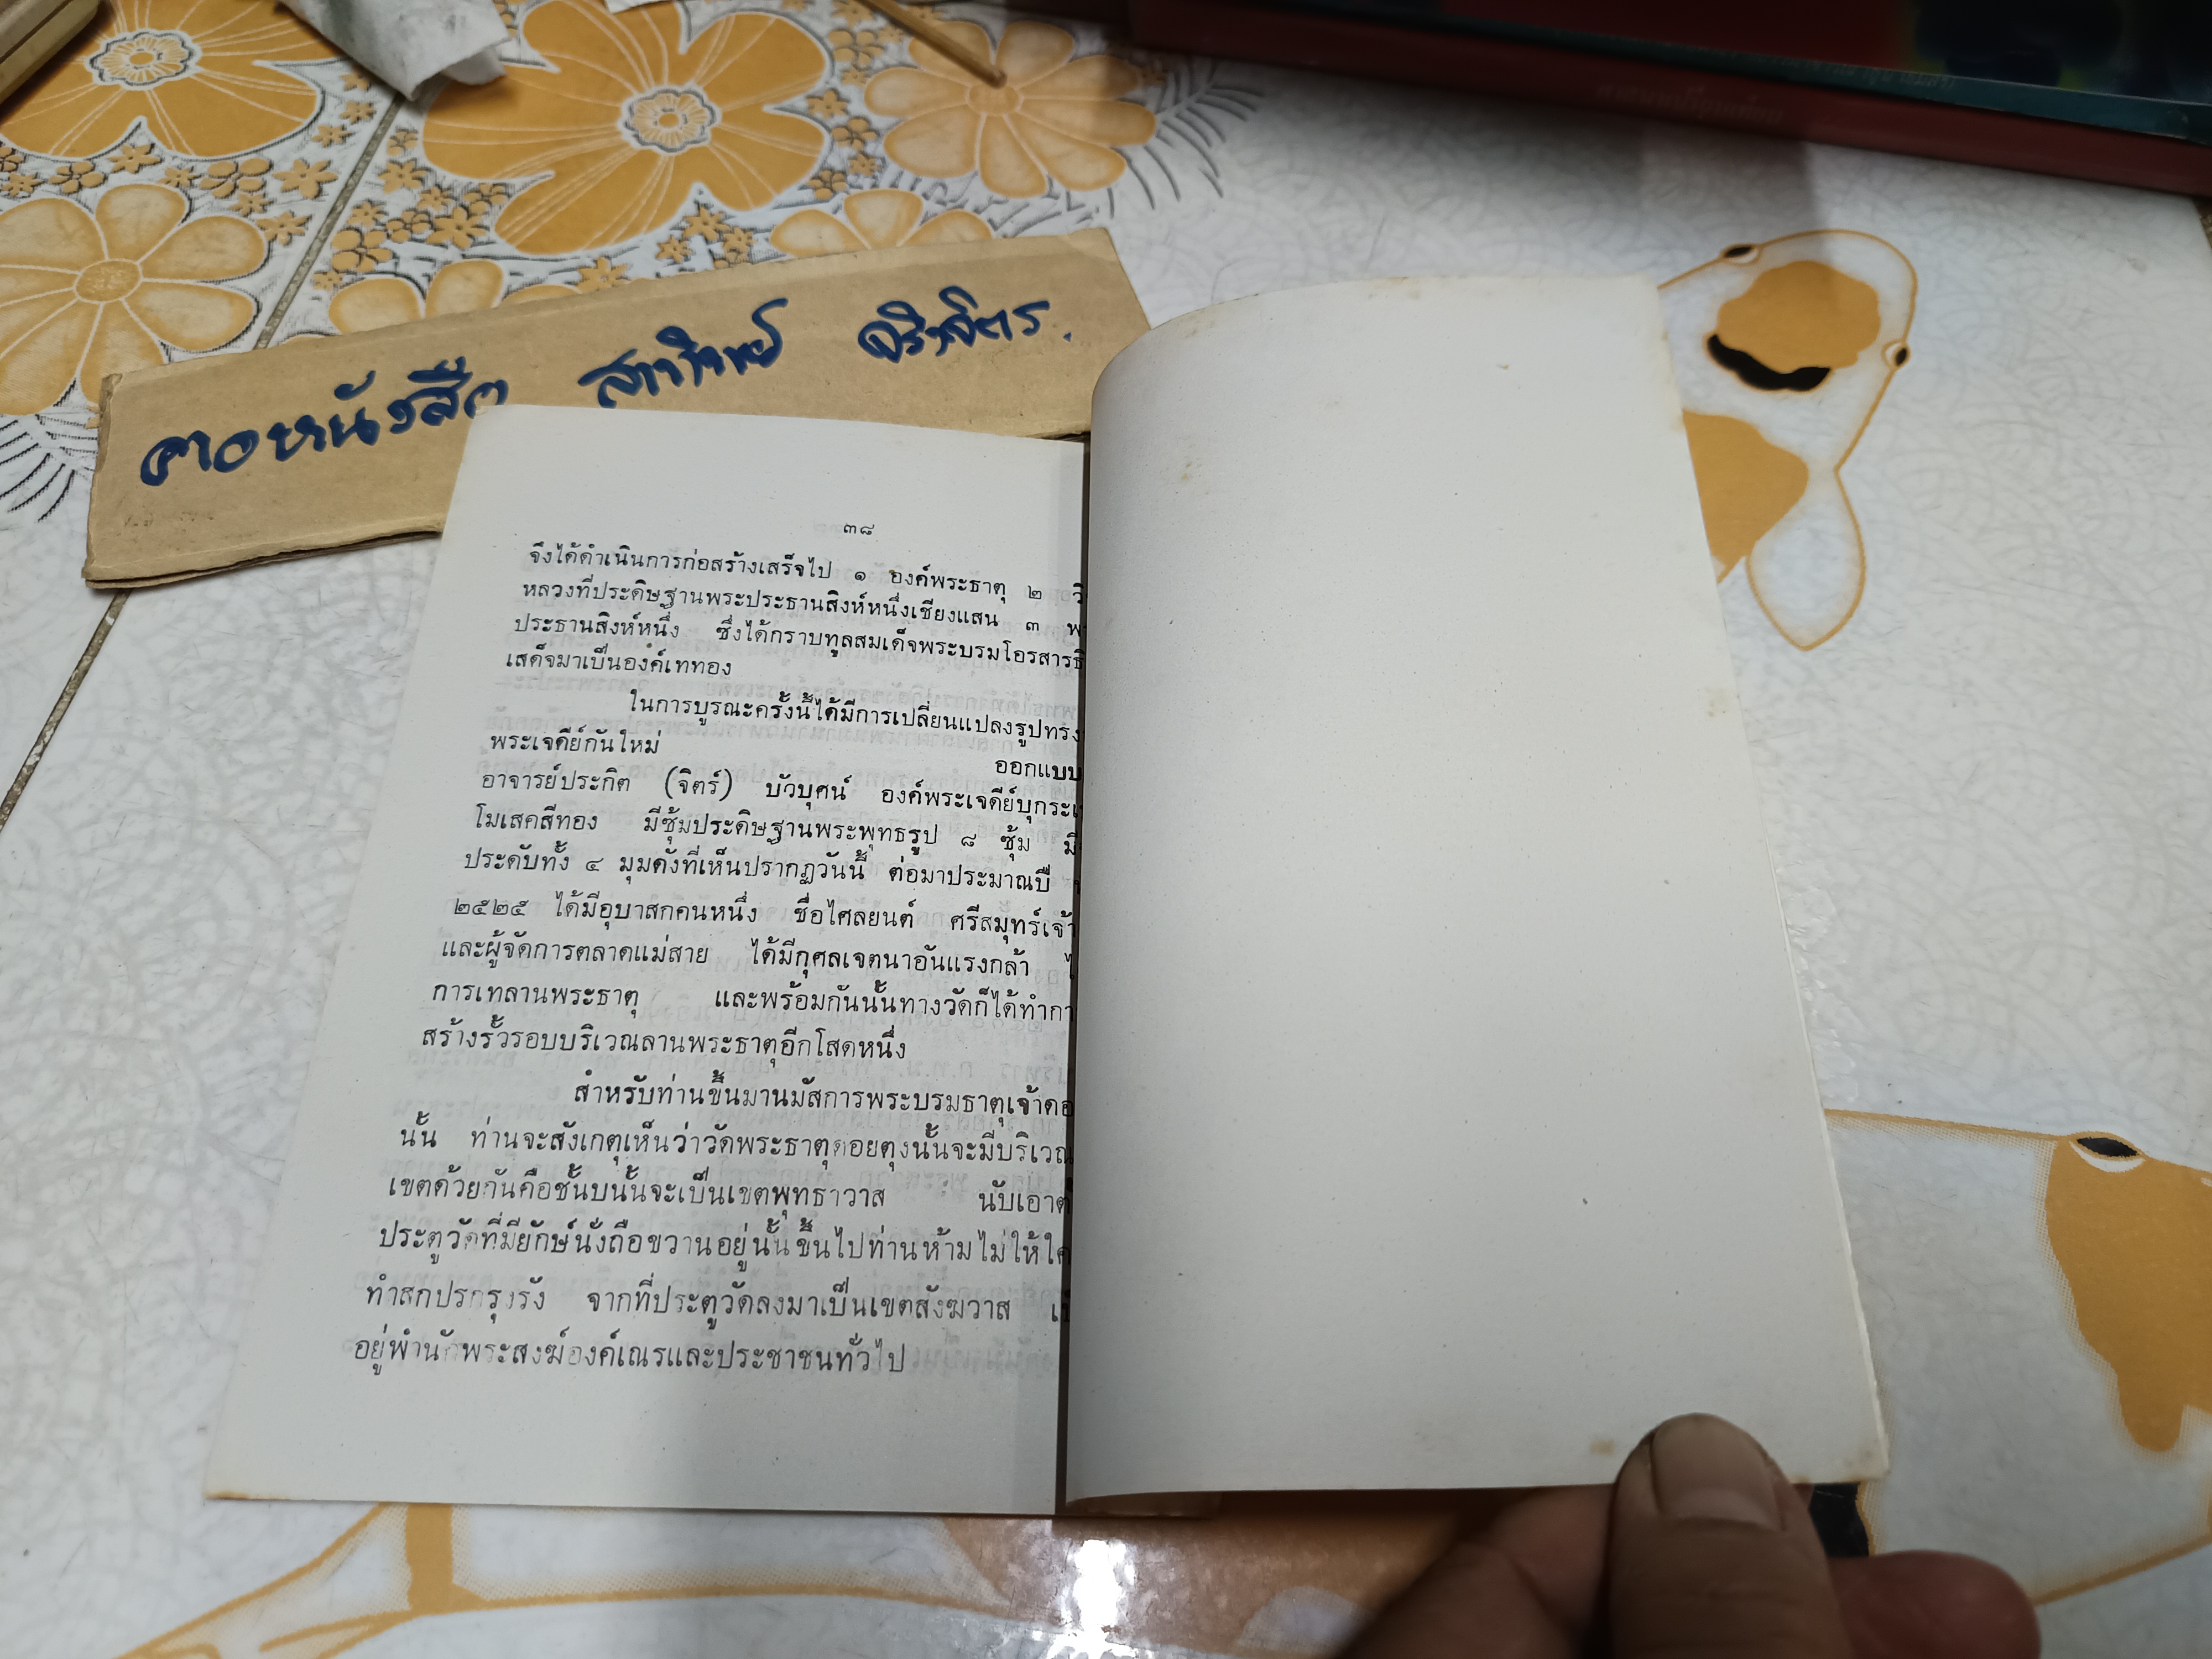 คอหนังสือ
๓๘
จึงได้ดำเนินการก่อสร้างเสร็จไป ๑ องค์พระธาตุ ๒
หลวงที่ประดิษฐานพระประธานสิงห์หนึ่งเชียงแสน ๓
ประธานสิงห์หนึ่ง ซึ่งได้กราบทูลสมเด็จพระบรมโอรสาธิ
เสด็จมาเป็นองค์เททอง
ในการบูรณะครั้งนี้ได้มีการเปลี่ยนแปลงรูปทรง
พระเจดีย์กันใหม่ ออกแบบ
อาจารย์ประกิต (จิตร์) บัวบุศน์ องค์พระเจดีย์บุกระเ
โมเสคสีทอง มีซุ้มประดิษฐานพระพุทธรูป ๘ ซุ้ม มี
ประดับทั้ง ๔ มุมดังที่เห็นปรากฏวันนี้ ต่อมาประมาณปี
๒๕๒๕ ได้มีอุบาสกคนหนึ่ง ชื่อไศลยนต์ ศรีสมุทร์เจ้า
และผู้จัดการตลาดแม่สาย ได้มีกุศลเจตนาอันแรงกล้า ไ
การเทลานพระธาตุ และพร้อมกันนั้นทางวัดก็ได้ทำกา
สร้างรั้วรอบบริเวณลานพระธาตุอีกโสดหนึ่ง
สำหรับท่านขึ้นมานมัสการพระบรมธาตุเจ้าดอ
นั้น ท่านจะสังเกตุเห็นว่าวัดพระธาตุดอยตุงนั้นจะมีบริเวณ
เขตด้วยกันคือชั้นบนนั้นจะเป็นเขตพุทธาวาส นับเอาต
ประตูวัดที่มียักษ์นั่งถือขวานอยู่นั้นขึ้นไปท่านห้ามไม่ให้ใค
ทำสกปรกรุงรัง จากที่ประตูวัดลงมาเป็นเขตสังฆวาส
อยู่พำนักพระสงฆ์องค์เณรและประชาชนทั่วไป